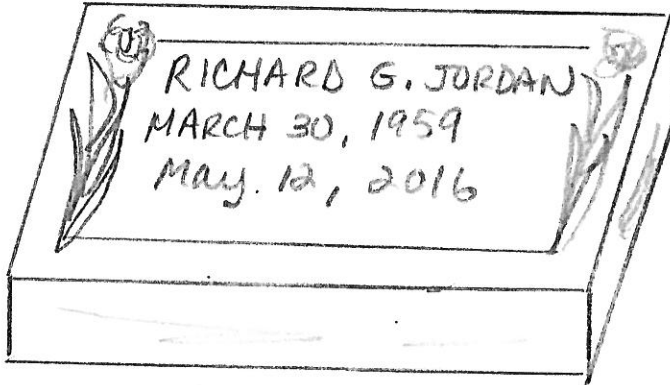 RICHARD G. JORDAN
MARCH 30, 1959
May. 12, 2016